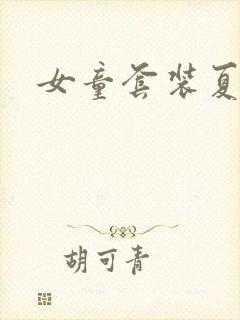 女童套装夏
胡可青